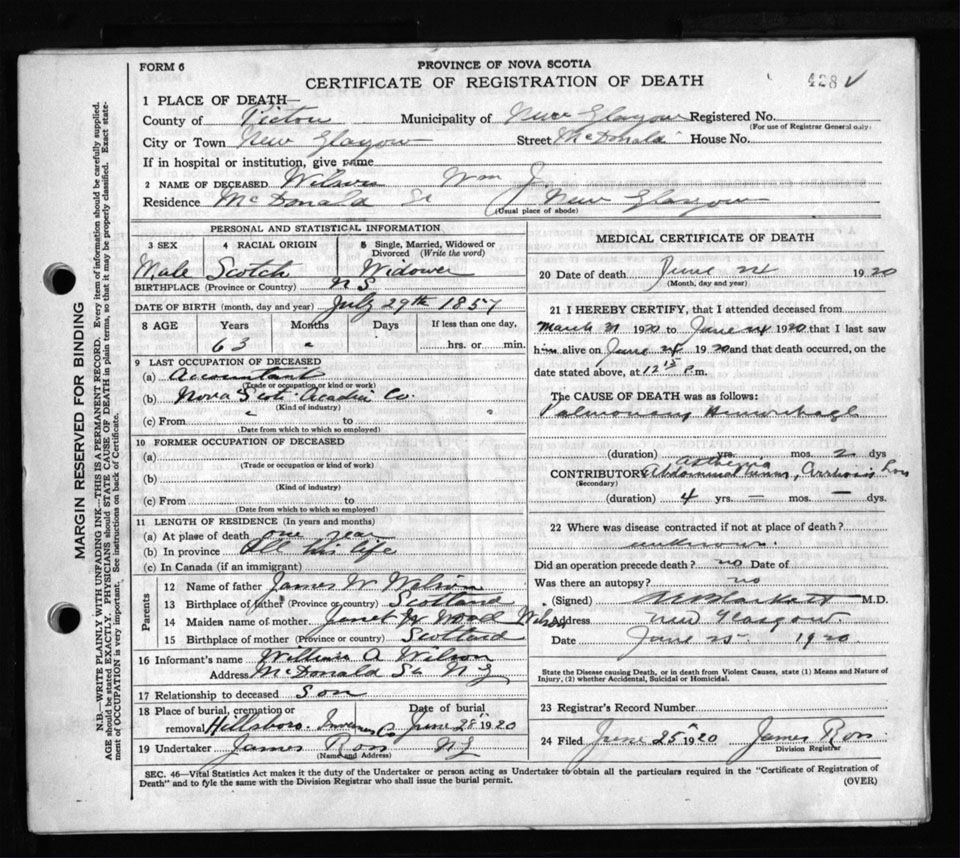 FORM 6
PROVINCE OF NOVA SCOTIA
CERTIFICATE OF REGISTRATION OF DEATH
428
1 PLACE OF DEATH—
County of Pictou Municipality of New Glasgow Registered No.
(For use of Registrar General only)
City or Town New Glasgow Street McDonald House No.
If in hospital or institution, give name
2 NAME OF DECEASED Wilson Wm J.
Residence McDonald St New Glasgow
(Usual place of abode)
PERSONAL AND STATISTICAL INFORMATION
3 SEX 4 RACIAL ORIGIN 5 Single, Married, Widowed or Divorced (Write the word)
Male Scotch Widower
BIRTHPLACE (Province or Country) N S
DATE OF BIRTH (month, day and year) July 29th 1857
8 AGE Years Months Days If less than one day,
63 hrs. or min.
9 LAST OCCUPATION OF DECEASED
(a) Accountant
(Trade or occupation or kind or work)
(b) Nova Scotia Acadia Co.
(Kind of industry)
(c) From to
(Date from which to which so employed)
10 FORMER OCCUPATION OF DECEASED
(a)
(Trade or occupation or kind of work)
(b)
(Kind of industry)
(c) From to
(Date from which to which so employed)
11 LENGTH OF RESIDENCE (In years and months)
(a) At plase of death one year
(b) In province All his life
(c) In Canada (if an immigrant)
Parents
12 Name of father James W Wilson
13 Birthplace of father (Province or country) Scotland
14 Maiden name of mother Janet W Wood Wilson
15 Birthplace of mother (Province or country) Scotland
16 Informant's name William A Wilson
Address McDonald St N G
17 Relationship to deceased Son
18 Place of burial, cremation or removal Hillsboro Inverness Co Date of burial June 28 1920
19 Undertaker James Ross N G
(Name and Address)
MEDICAL CERTIFICATE OF DEATH
20 Date of death June 24 1920
(Month, day and year)
21 I HEREBY CERTIFY, that I attended deceased from
March 21 1920 to June 24 1920 that I last saw
him alive on June 24 1920 and that death occurred, on the
date stated above, at 12 15 P.m.
The CAUSE OF DEATH was as follows:
Pulmonary Hemorrhage
(duration) yrs. mos. 2 dys.
CONTRIBUTORY Asthenia Abdominal
(Secondary)
(duration) 4 yrs. — mos. — dys.
22 Where was disease contracted if not at place of death?
unknown.
Did an operation precede death? no Date of
Was there an autopsy? no
(Signed) M.D.
Address New Glasgow
Date June 25 1920
State the Disease causing Death, or in death from Violent Causes, state (1) Means and Nature of
Injury, (2) whether Accidental, Suicidal or Homicidal.
23 Registrar's Record Number
24 Filed June 25 1920 James Ross
Division Registrar
SEC. 46—Vital Statistics Act makes it the duty of the Undertaker or person acting as Undertaker to obtain all the particulars required in the "Certificate of Registration of
Death" and to fyle the same with the Division Registrar who shall issue the burial permit.
(OVER)
MARGIN RESERVED FOR BINDING
N.B.—WRITE PLAINLY WITH UNFADING INK—THIS IS A PERMANENT RECORD. Every item of information should be carefully supplied.
AGE should be stated EXACTLY. PHYSICIANS should STATE CAUSE OF DEATH in plain terms, so that it may be properly classified. Exact state-
ment of OCCUPATION is very important. See instructions on back of Certificate.